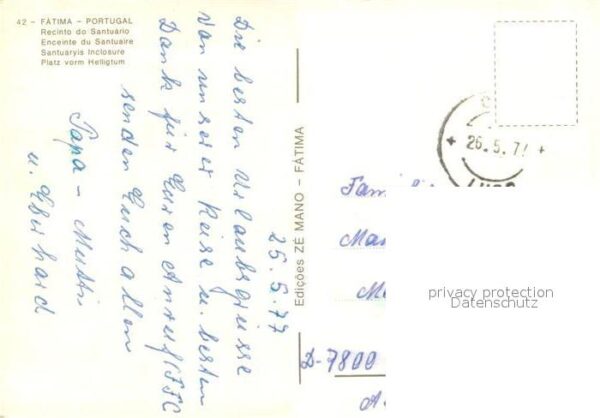 42 - FÁTIMA - PORTUGAL
Recinto do Santuário
Enceinte du Santuaire
Santuaryis Inclosure
Platz vorm Helligtum
25.5.77
Die besten Urlaubsgrüsse
von unserer Reise u. besten
Dank für Euren Anruf
senden Euch allen
Papa - Mutti
u. Eberhard
Edições ZÉ MANO - FÁTIMA
26.5.77
D-7800
privacy protection
Datenschutz